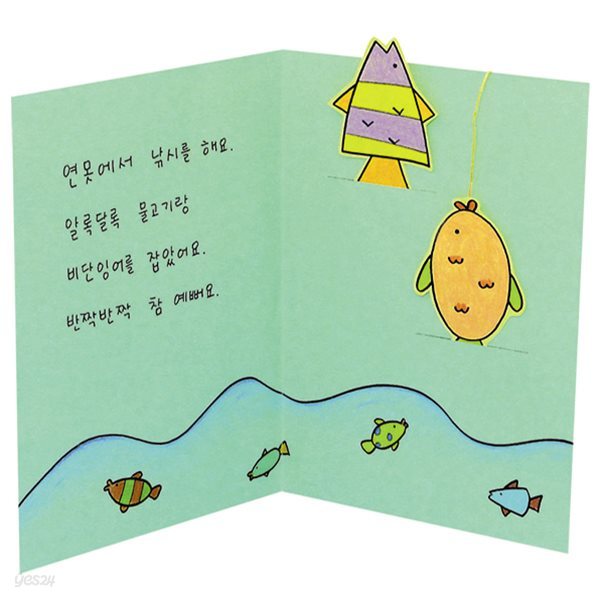 연못에서 낚시를 해요.
알록달록 물고기랑
비단잉어를 잡았어요.
반짝반짝 참 예뻐요.
yes24